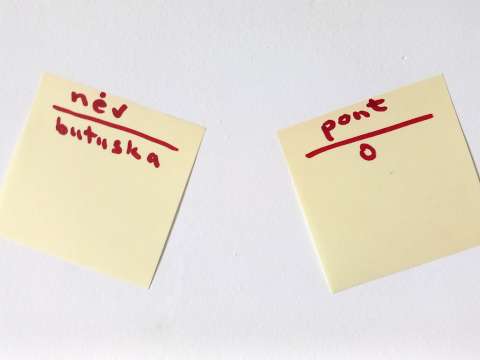 név
butuska
pont
0